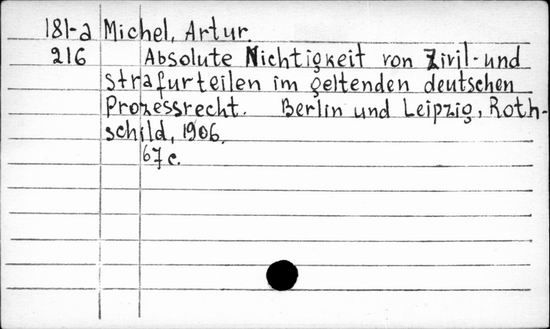 181-a Michel, Artur.
216 Absolute Nichtigkeit von Zivil- und
Strafurteilen im geltenden deutschen
Prozessrecht. Berlin und Leipzig, Roth-
schild, 1906.
67 c.